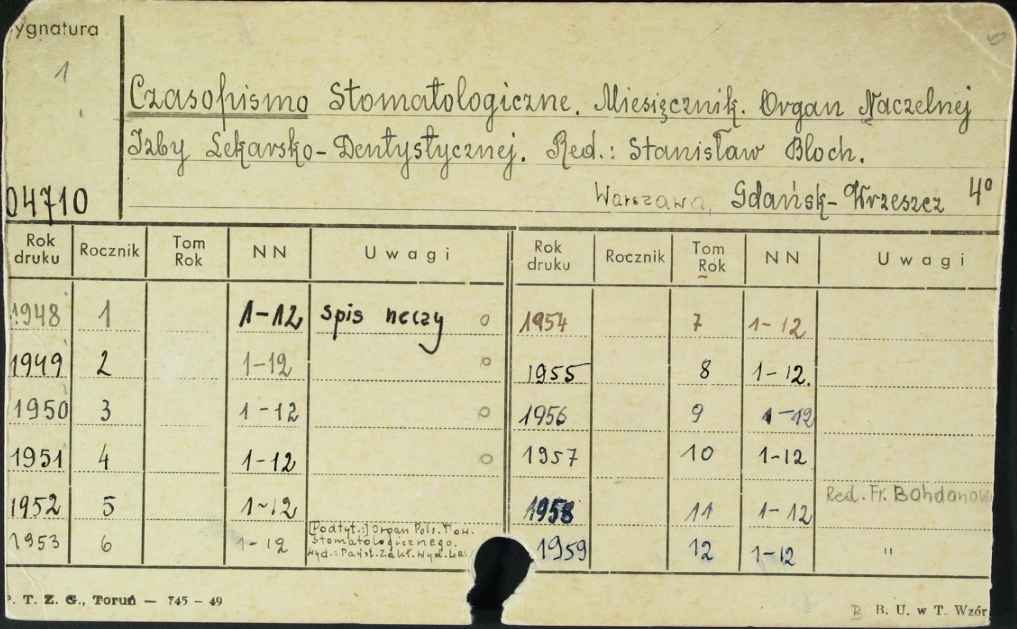 ygnatura
1
Czasopismo Stomatologiczne. Miesięcznik. Organ Naczelnej
Izby Lekarsko-Dentystycznej. Red.: Stanisław Bloch.
04710 Warszawa, Gdańsk-Wrzeszcz 4°
Rok druku Rocznik Tom Rok NN Uwagi Rok druku Rocznik Tom Rok NN Uwagi
1948 1 1-12 spis rzeczy o 1954 7 1-12
1949 2 1-12 o 1955 8 1-12.
1950 3 1-12 o 1956 9 1-12
1951 4 1-12 o 1957 10 1-12
1952 5 1-12 1958 11 1-12 Red. Fr. Bohdanow
1953 6 1-12 [Podtyt.:] Organ Pols. Tow. 1959 12 1-12 "
Stomatologicznego.
Wyd.: Państ. Zakł. Wyd. Le
. T. Z. G., Toruń — 745 - 49
B B. U. w T. Wzór